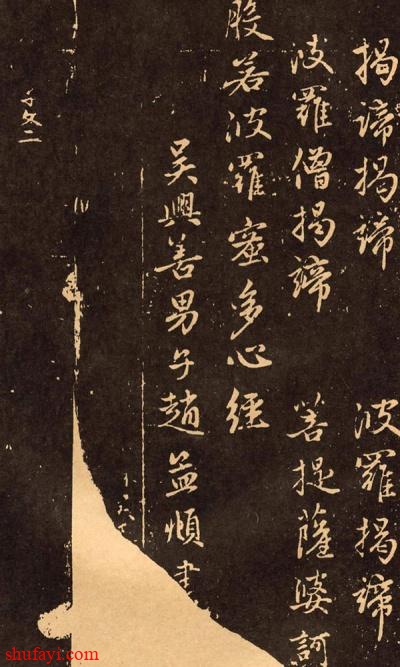 揭諦揭諦 波羅揭諦
波羅僧揭諦 菩提薩婆訶
般若波羅蜜多心經
吳興善男子趙益順書
shufayi.com